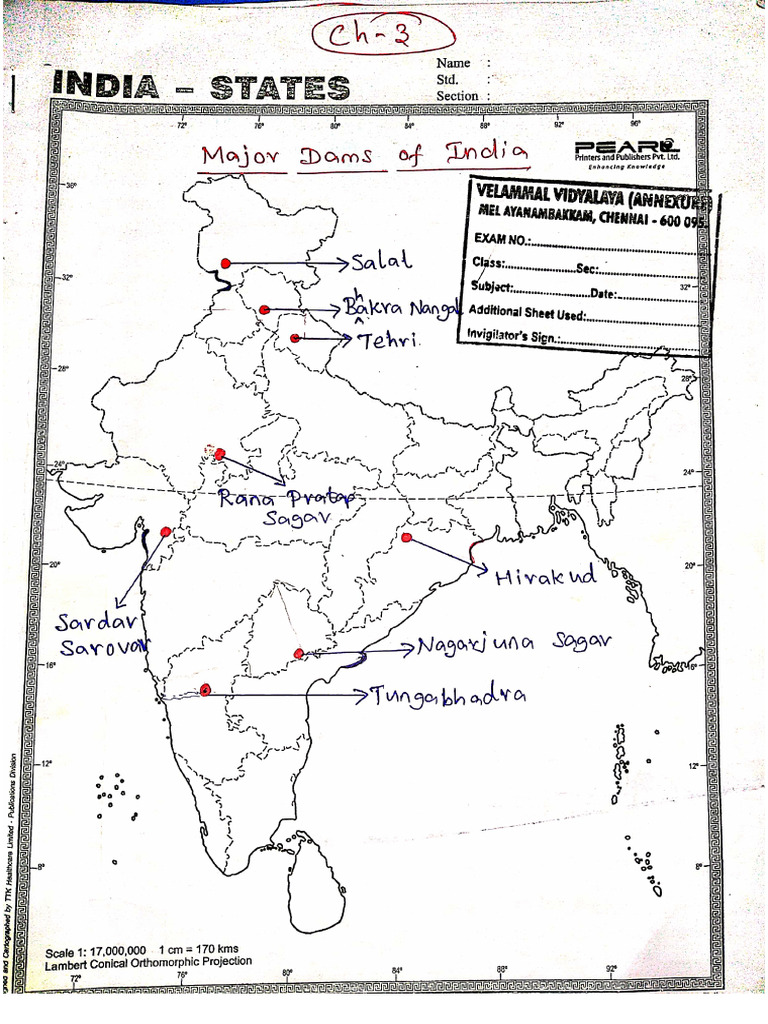 Ch-3
Name :
INDIA - STATES
Std. :
Section :
72° 76° 80° 84° 88° 92° 96°
Major Dams of India
PEARL
Printers and Publishers Pvt. Ltd.
Enhancing Knowledge
36°
VELAMMAL VIDYALAYA (ANNEXURE)
MEL AYANAMBAKKAM, CHENNAI - 600 095.
EXAM NO.:
Class: Sec:
Subject: Date:
Additional Sheet Used:
Invigilator's Sign.:
Salal
32° 32°
Bhakra Nangal
Tehri
28° 28°
24° 24°
Rana Pratap
Sagar
20° 20°
Hirakud
Sardar
Sarovar
Nagarjuna Sagar
16° 16°
Tungabhadra
12° 12°
8° 8°
Scale 1: 17,000,000 1 cm = 170 kms
Lambert Conical Orthomorphic Projection
72° 76° 80° 84° 88° 92°
and Cartographed by TTK Healthcare Limited - Publications Division